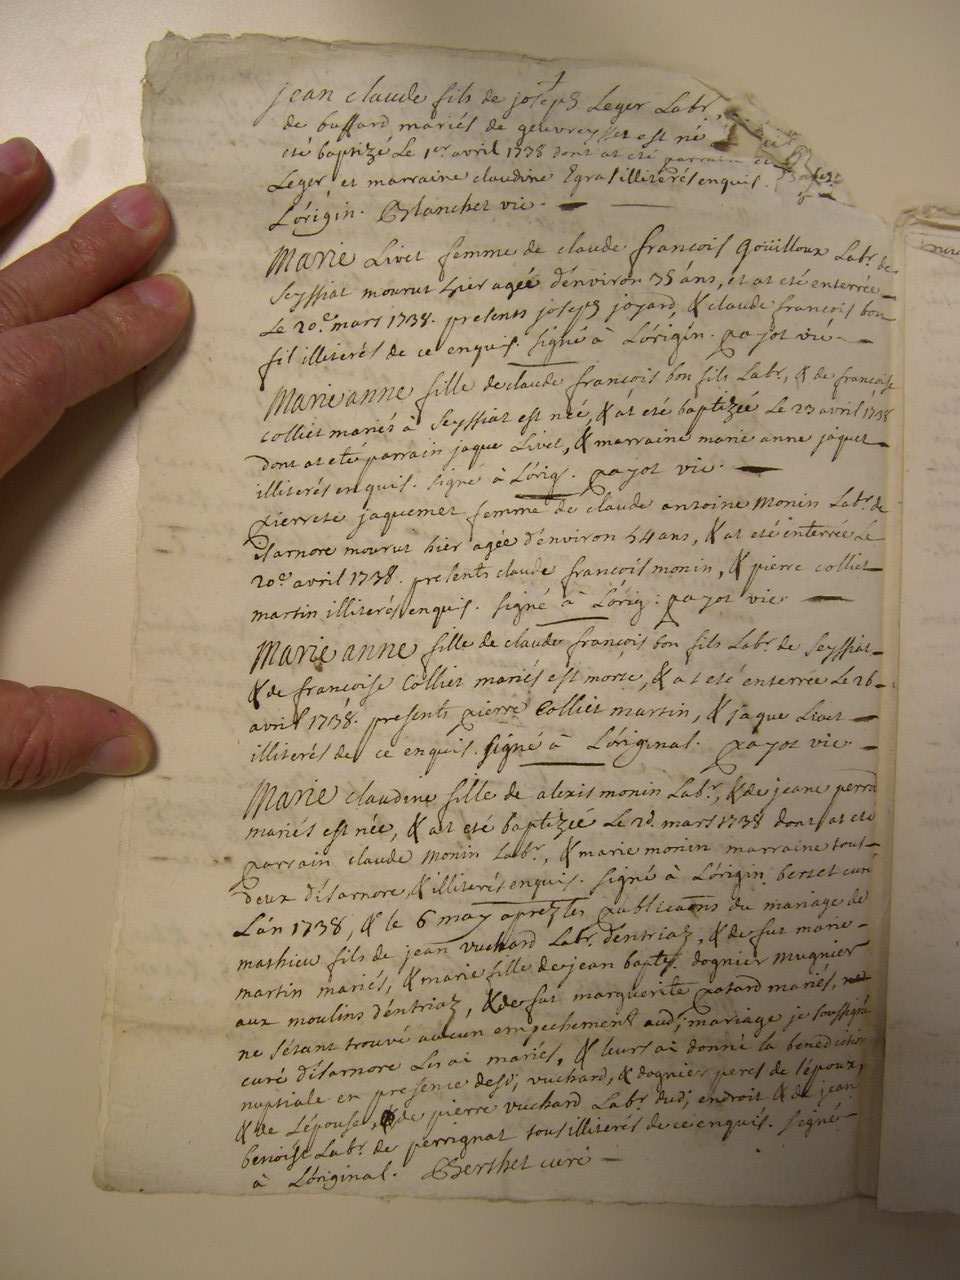 jean claude fils de joseph Leger Labr,
de bussard mariés de geuvreysset est né
eté baptizé Le 1er avril 1738 dont at eté parrain
Leger, et marraine claudine Egras illiterés enquis.
L'origin. Blanchet vic.
Marie Livet femme de claude françois Goüilloux Labr. de
Seyssiat mourut hier agée d'environ 35 ans, et at eté enterrée
Le 20e mars 1738. presents joseph joyard, & claude françois bon
fil illiterés de ce enquis. signé à L'origin. payot vic.
Marie anne fille de claude françois bon fils Labr, & de françoise
colliet mariés à Seyssiat est née, & at eté baptizée Le 23 avril 1738
dont at eté parrain jaque Livet, & marraine marie anne jaquet
illiterés enquis. signé à L'orig. payot vic.
pierrete jaquemet femme de claude antoine Monin Labr. de
isarnore mourut hier agée d'environ 54 ans, & at eté enterrée Le
20e avril 1738. presents claude françois monin, & pierre colliet
martin illiterés enquis. signé à L'orig: payot vic
Marie anne fille de claude françois bon fils Labr. de Seyssiat
& de françoise Colliet mariés est morte, & at eté enterrée Le 26
avril 1738. presents pierre Colliet martin, & jaque Livet
illiterés de ce enquis. signé à L'original. payot vic.
Marie claudine fille de alexis monin Labr, & de jeane perra
mariés est née, & at eté baptizée Le 2d. mars 1738 dont at eté
parrain claude Monin Labr, & marie monin marraine tout
deux d'isarnore & illiterés enquis. signé à L'origin. bertet curé
L'an 1738, & le 6 may aprez les publicaons du mariage de
mathieu fils de jean vuchard Labr. d'entriaz, & de fut marie
martin mariés, & marie fille de jean baptt. dognier mugnier
aux moulins d'entriaz, & de fut marguerite patard mariés,
ne s'étant trouvé aucun empechement aud; mariage je soussigné
curé d'isarnore Les ai mariés, & leurs ai donné la benediction
nuptiale en presence desd; vuchard, & dognier peres de l'époux,
& de L'épouse, & de pierre vuchard Labr. dud; endroit & de jean
benoist Labr. de perrignat tous illiterés de ce enquis. signé
à L'original. Berthet curé